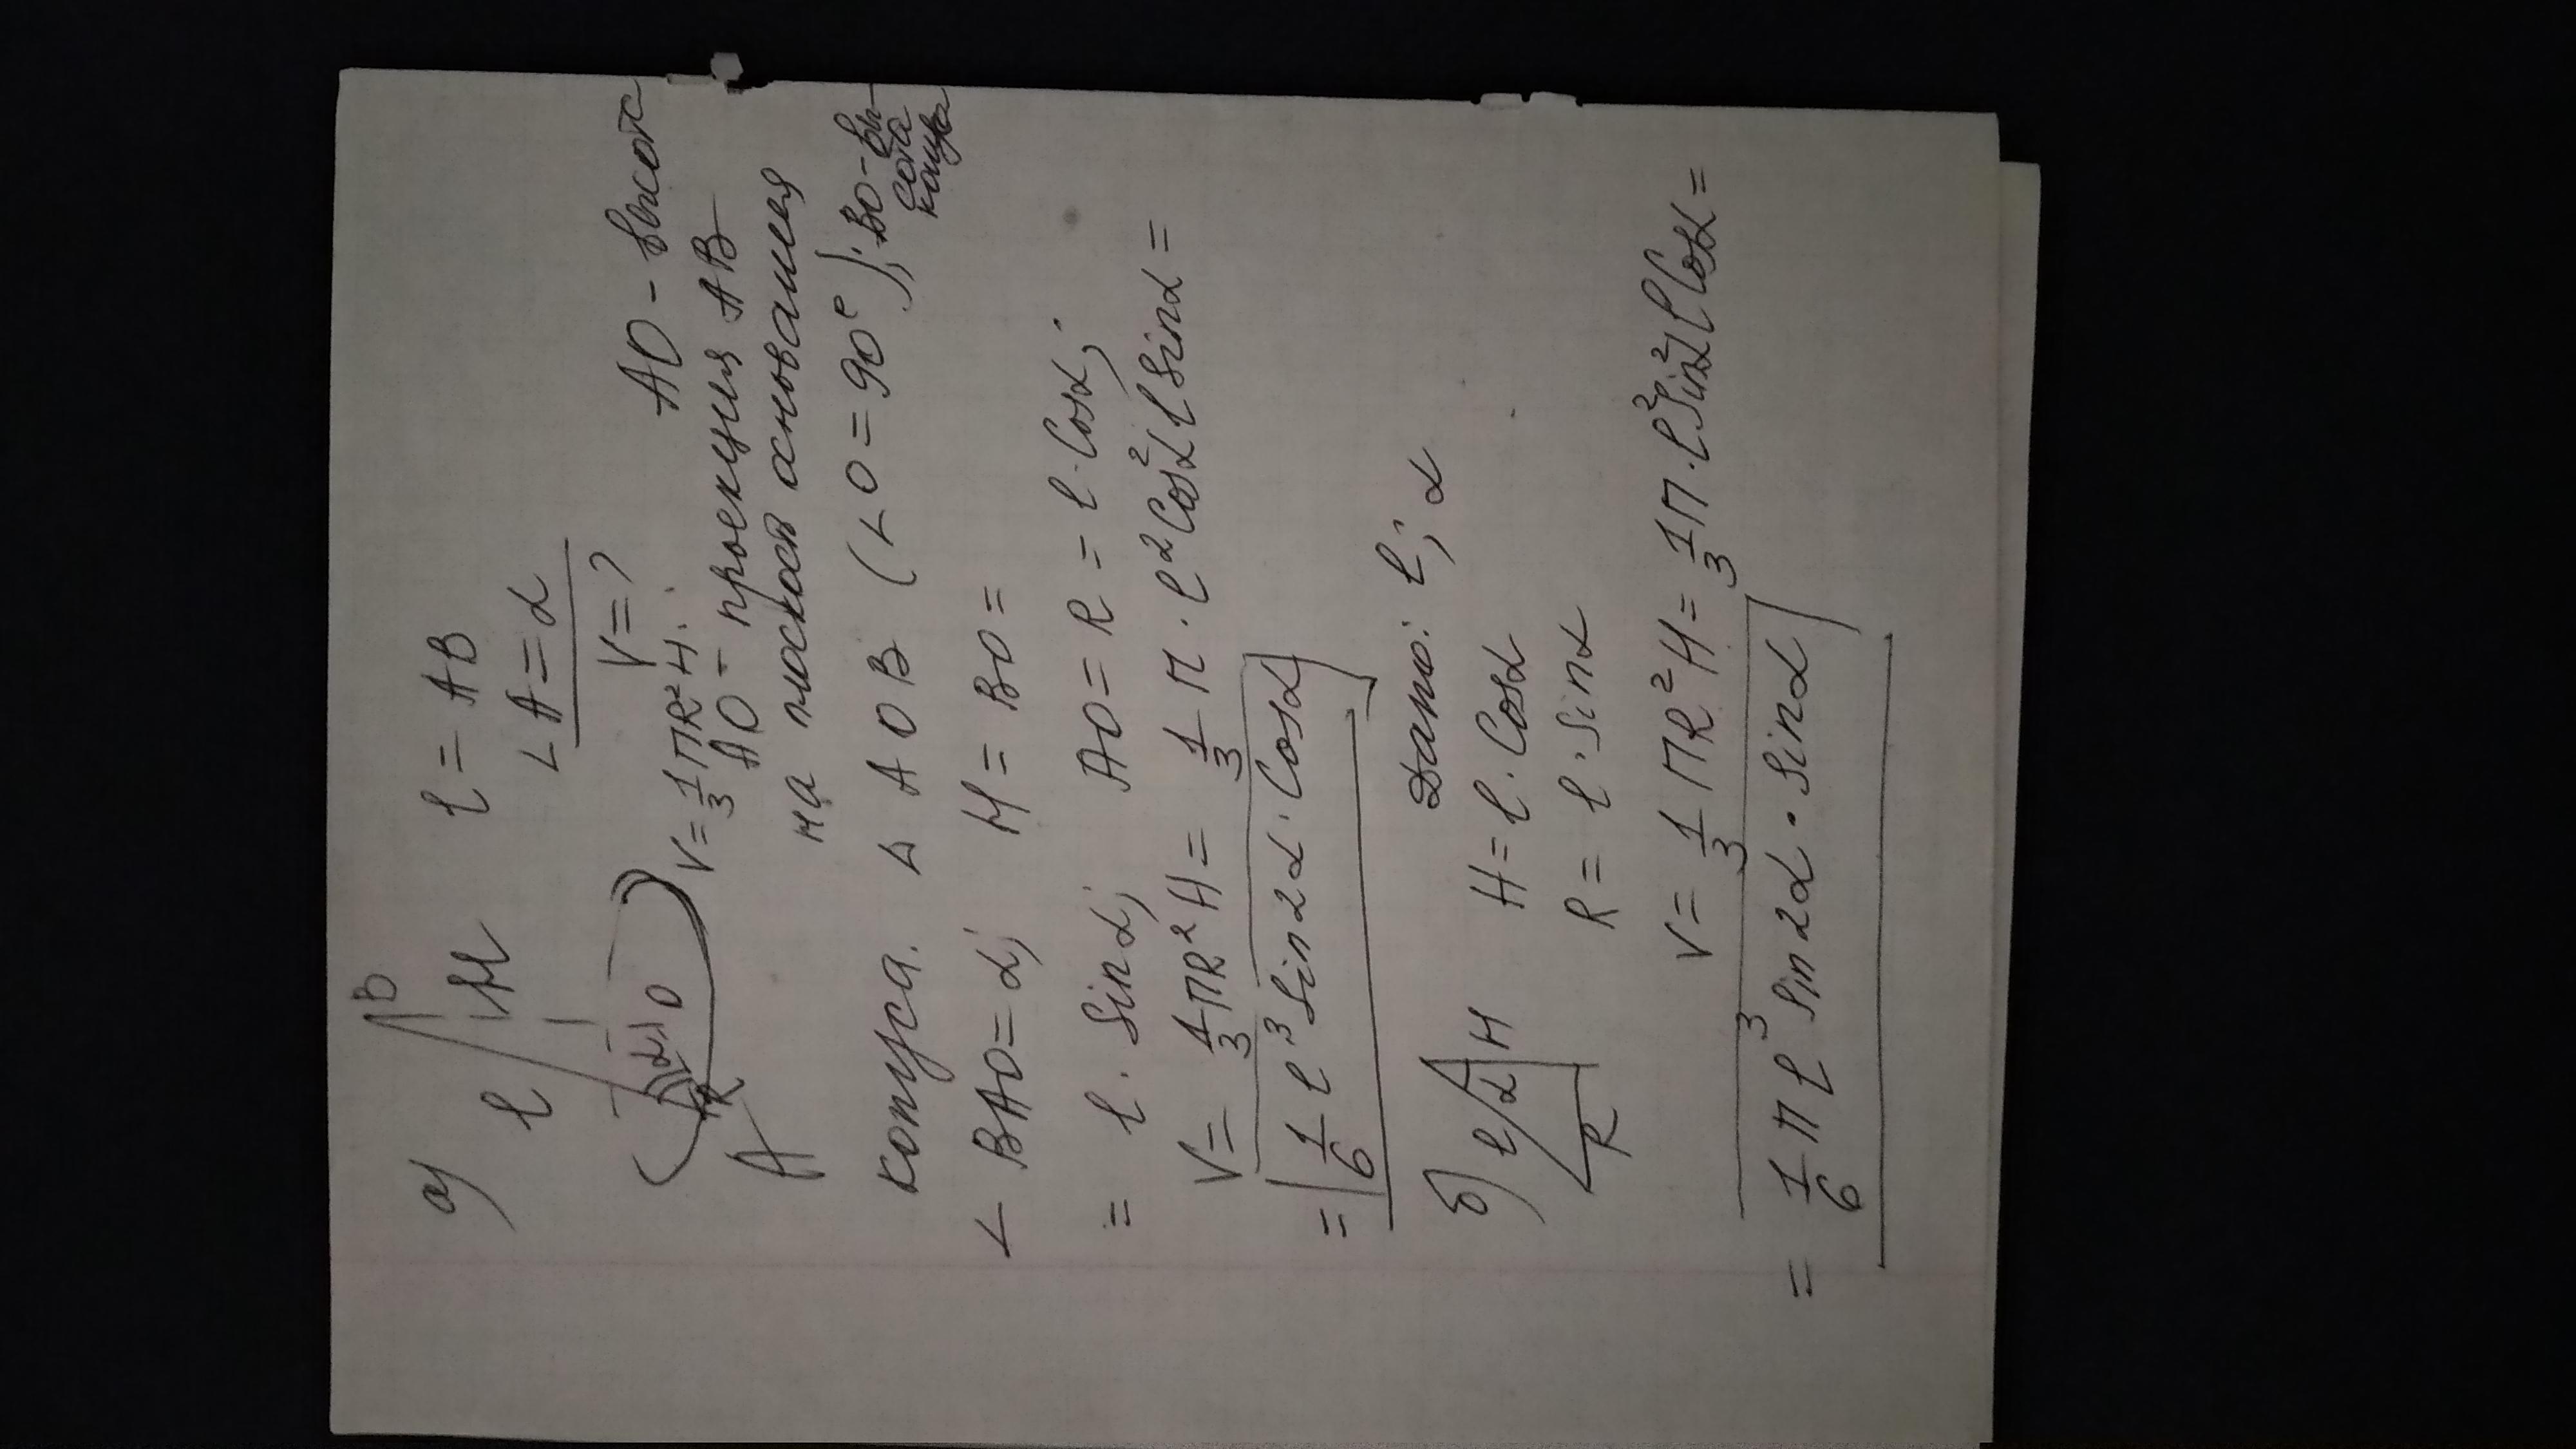 а) B
l = AB
l H
∠A = α
V = ?
α O
R
A
AO - высота
V = 1/3 ПR²H.
AO - проекция AB
на плоскост основания
конуса. △ AOB (∠O = 90°); BO - вы-
сота
конуса
∠ BAO = α; H = BO =
= l · Sinα; AO = R = l · Cosα;
V = 1/3 ПR²H = 1/3 П · l² Cos²α l Sinα =
= 1/6 l³ Sin2α · Cosα
б) Дано: l; α
l α H H = l · Cosα
R R = l · Sinα
V = 1/3 ПR²H = 1/3 П · l² Sin²α l Cosα =
= 1/6 П l³ Sin2α · Sinα